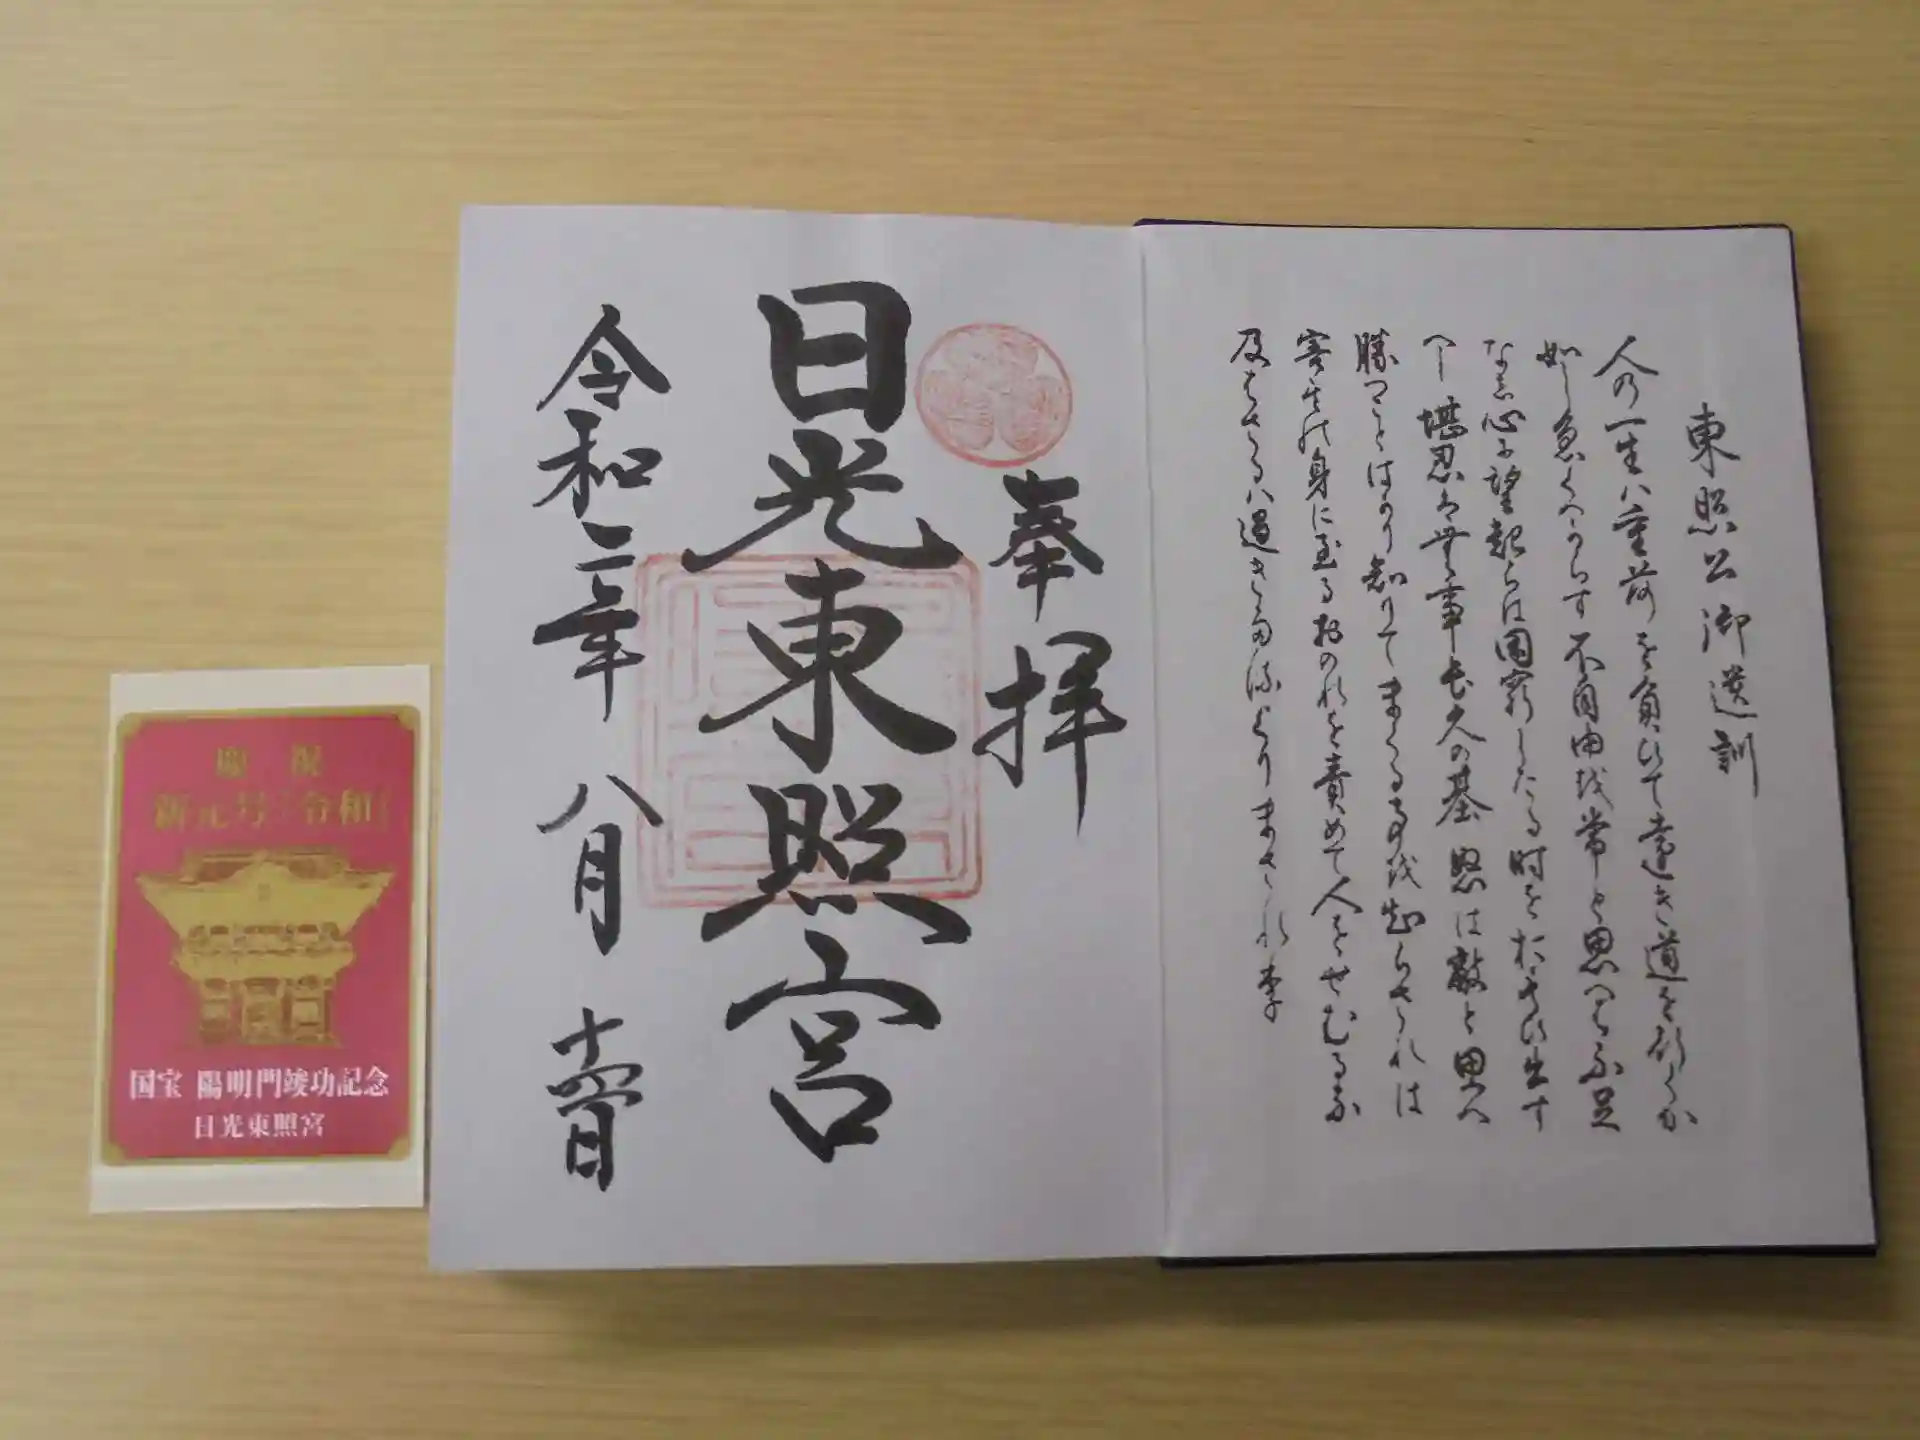 東照公御遺訓
人の一生ハ重荷を負ひて遠き道を行くか
如し急くへからす不自由を常と思へハ不足
なし心に望起らは困窮したる時をおもひ出す
へし堪忍ハ無事長久の基怒は敵と思へ
勝つことはかり知りてまくる事を知らされは
害其の身に至るおのれを責めて人をせむるな
及はさるハ過きたるよりまされり
奉拝
日光東照宮
令和二年八月
慶祝
新元号「令和」
国宝 陽明門竣功記念
日光東照宮